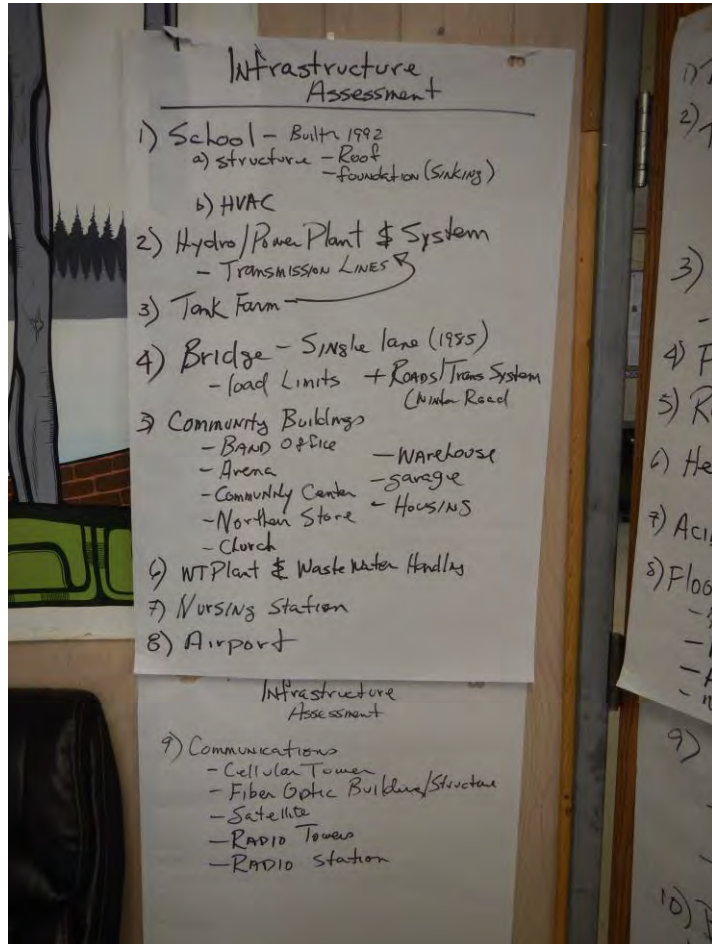 Infrastructure
Assessment
1) School - Built 1992
a) structure - Roof
- foundation (Sinking)
b) HVAC
2) Hydro/Power Plant & System
- Transmission Lines
3) Tank Farm
4) Bridge - Single lane (1985)
- load Limits + Roads/Trans System
(Winter Road
5) Community Buildings
- Band Office
- Arena
- Community Center
- Northern Store
- Church
- Warehouse
- garage
- Housing
6) WT Plant & Waste Water Handling
7) Nursing Station
8) Airport
Infrastructure
Assessment
9) Communications
- Cellular Tower
- Fiber Optic Building/Structure
- Satellite
- Radio Towers
- Radio Station
1)
2)
3)
4)
5)
6) He
7) Aci
8) Floo
9)
10)